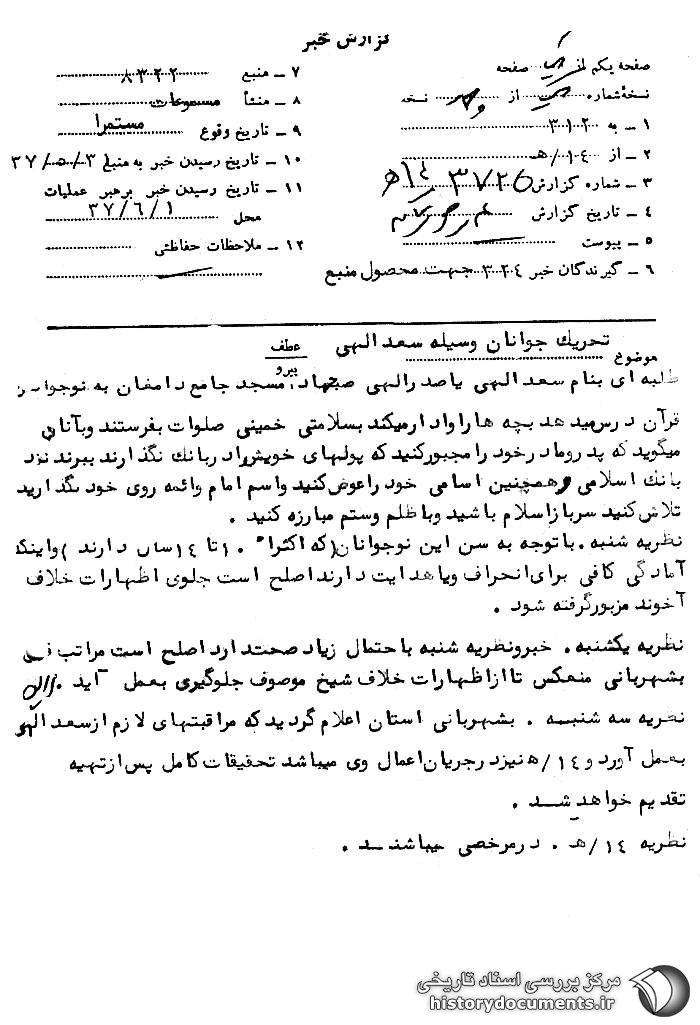 گزارش خبر
صفحه یکم از یک صفحه
نسخهٔ شماره یک از نسخه
۱ ـ به ۳۱۲
۲ ـ از ۱۴/هـ
۳ ـ شماره گزارش ۳۷۲۵/۱۴هـ
۴ ـ تاریخ گزارش
۵ ـ پیوست
۶ ـ گیرندگان خبر ۳۲۴ جهت محصول منبع
۷ ـ منبع ۸۳۲۲
۸ ـ منشأ مسموعات
۹ ـ تاریخ وقوع مستمرا
۱۰ ـ تاریخ رسیدن خبر به منبع ۳۷/۵/۳
۱۱ ـ تاریخ رسیدن خبر برهبر عملیات
محل ۳۷/۶/۱
۱۲ ـ ملاحظات حفاظتی
موضوع تحریک جوانان وسیله سعد الهی
عطف
پیرو
طلبه ای بنام سعد الهی یا صدرالهی صبحها در مسجد جامع دامغان به نوجوانان
قرآن درس میدهد بچه ها را وادار میکند بسلامتی خمینی صلوات بفرستند وبآنان
میگوید که پدر ومادر خود را مجبور کنید که پولهای خویش را در بانک نگذارند ببرند نزد
بانک اسلامی وهمچنین اسامی خود را عوض کنید واسم امام وائمه روی خود بگذارید
تلاش کنید سرباز اسلام باشید وبا ظلم وستم مبارزه کنید .
نظریه شنبه . با توجه به سن این نوجوانان (که اکثرا" ۱۰ تا ۱۴ سال دارند) واینکه
آمادگی کافی برای انحراف ویا هدایت دارند اصلح است جلوی اظهارات خلاف
آخوند مزبور گرفته شود .
نظریه یکشنبه . خبر ونظریه شنبه با حتمال زیاد صحت دارد اصلح است مراتب
بشهربانی منعکس تا از اظهارات خلاف شیخ موصوف جلوگیری بعمل آید .
نظریه سه شنبه . بشهربانی استان اعلام گردید که مراقبتهای لازم از سعد الهی
بعمل آورد و ۱۴/هـ نیز در جریان اعمال وی میباشد تحقیقات کامل پس از تهیه
تقدیم خواهد شد .
نظریه ۱۴/هـ . در مرخصی میباشند .
مرکز بررسی اسناد تاریخی
historydocuments.ir